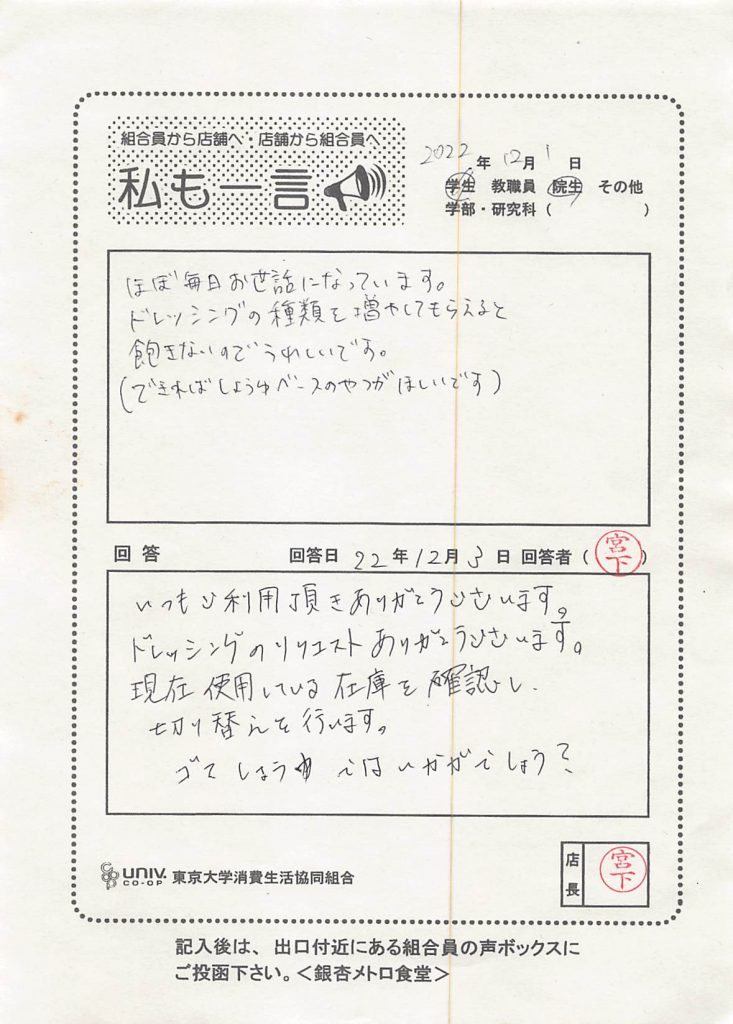 組合員から店舗へ・店舗から組合員へ
私も一言
2022年12月1日
学生 教職員 院生 その他
学部・研究科( )
ほぼ毎日お世話になっています。
ドレッシングの種類を増やしてもらえると
飽きないのでうれしいです。
(できればしょうゆベースのやつがほしいです)
回答 回答日 22年12月3日 回答者(宮下)
いつもご利用頂きありがとうございます。
ドレッシングのリクエストありがとうございます。
現在使用している在庫を確認し、
切り替えを行います。
ゴマしょうゆではいかがでしょう?
COOP UNIV. CO-OP 東京大学消費生活協同組合
店長 宮下
記入後は、出口付近にある組合員の声ボックスに
ご投函下さい。<銀杏メトロ食堂>